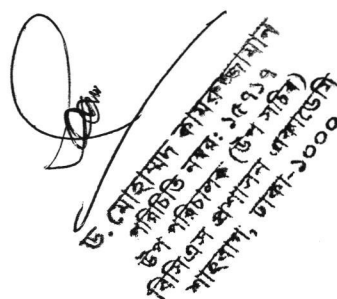 ড. মোহাম্মদ কামরুজ্জামান
পরিচিতি নম্বর: ১৫৭১৭
উপ পরিচালক (উপ সচিব)
বিসিএস প্রশাসন একাডেমি
শাহবাগ, ঢাকা-১০০০